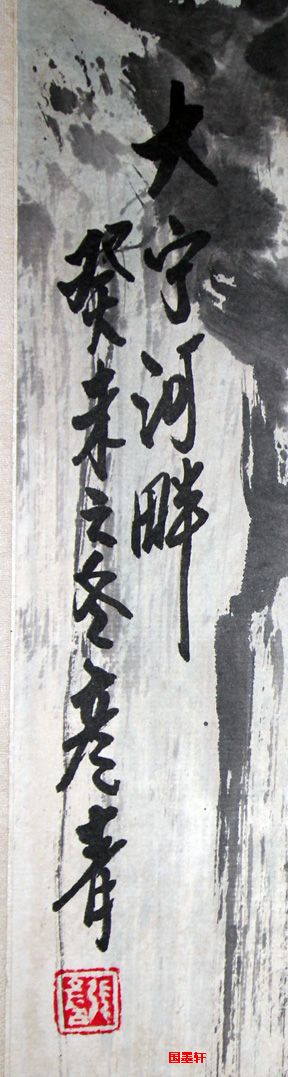 大宁河畔
癸未之冬彦青
国墨轩